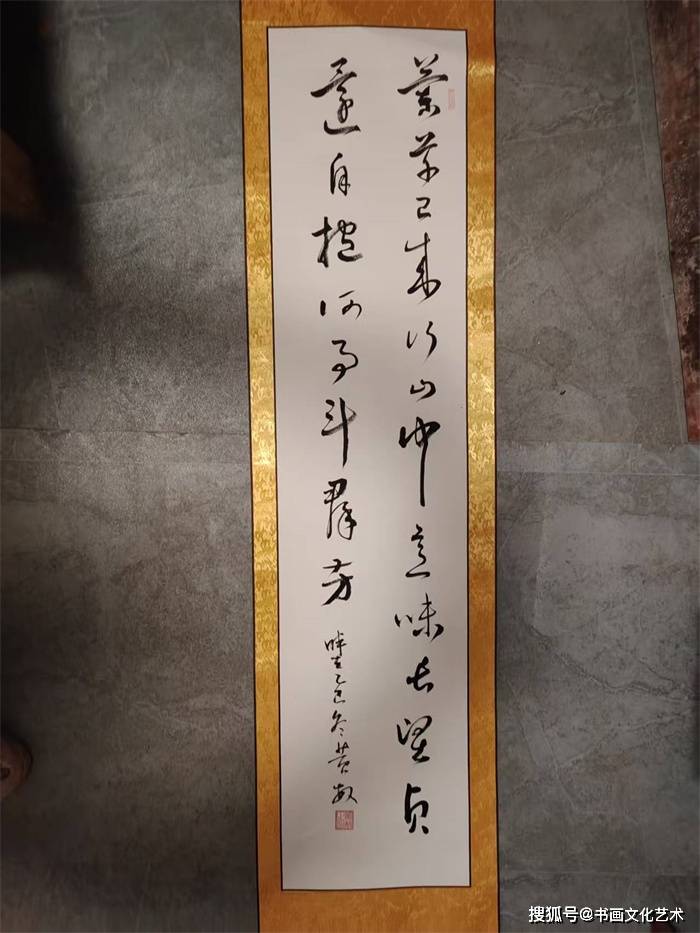 蘭草已成行山中意味长堅贞
還自抱何事斗群芳
時在乙巳冬黄敏
搜狐号@书画文化艺术